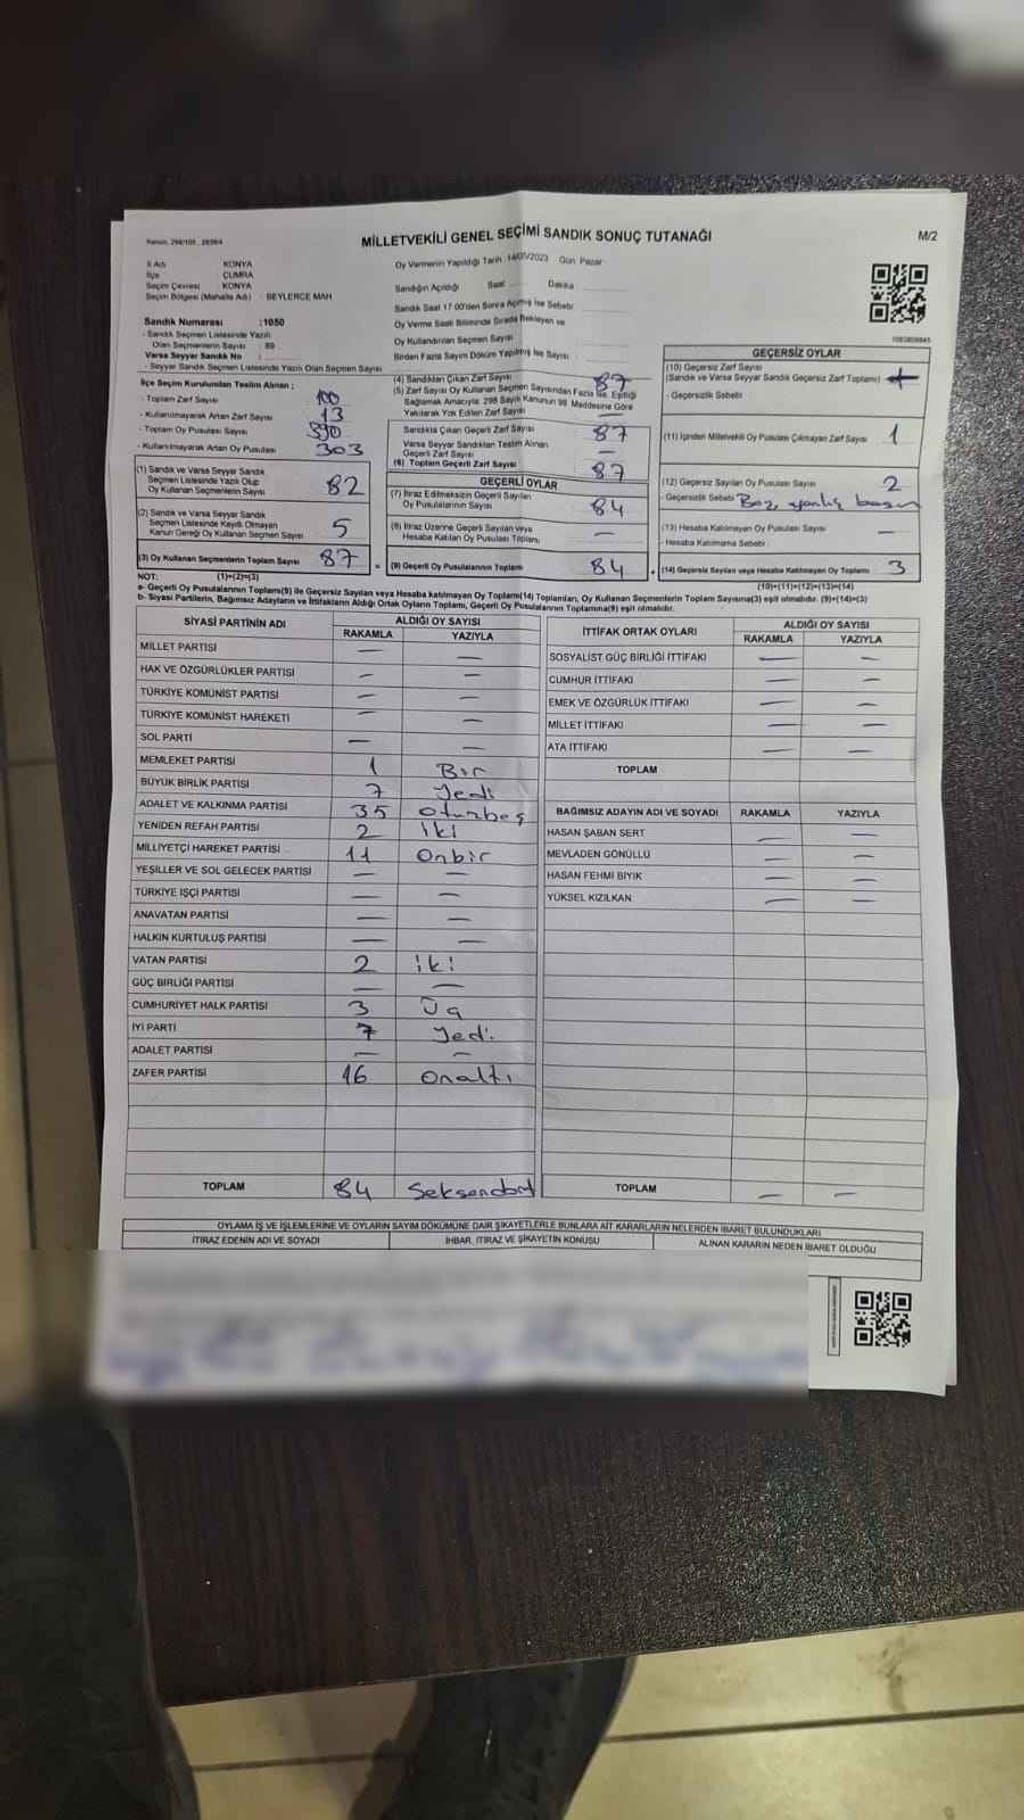 MİLLETVEKİLİ GENEL SEÇİMİ SANDIK SONUÇ TUTANAĞI
M/2
İl Adı KONYA
İlçe ÇUMRA
Seçim Çevresi KONYA
Seçim Bölgesi (Mahalle Adı) : BEYLERCE MAH
Sandık Numarası :1050
- Sandık Seçmen Listesinde Yazılı
Olan Seçmenlerin Sayısı : 89
Varsa Seyyar Sandık No :
- Seyyar Sandık Seçmen Listesinde Yazılı Olan Seçmen Sayısı
Oy Vermenin Yapıldığı Tarih : 14/05/2023 Gün Pazar
Sandığın Açıldığı Saat Dakika
Sandık Saat 17:00'den Sonra Açılmış İse Sebebi
Oy Verme Saati Bitiminde Sırada Bekleyen ve
Oy Kullandırılan Seçmen Sayısı
Birden Fazla Sayım Döküm Yapılmış İse Sayısı
İlçe Seçim Kurulundan Teslim Alınan :
- Toplam Zarf Sayısı 100
- Kullanılmayarak Artan Zarf Sayısı 13
- Toplam Oy Pusulası Sayısı 390
- Kullanılmayarak Artan Oy Pusulası 303
(1) Sandık ve Varsa Seyyar Sandık
Seçmen Listesinde Yazılı Olup
Oy Kullanan Seçmenlerin Sayısı 82
(2) Sandık ve Varsa Seyyar Sandık
Seçmen Listesinde Kayıtlı Olmayan
Kanun Gereği Oy Kullanan Seçmen Sayısı 5
(3) Oy Kullanan Seçmenlerin Toplam Sayısı 87
(4) Sandıktan Çıkan Zarf Sayısı 87
(5) Zarf Sayısı Oy Kullanan Seçmen Sayısından Fazla İse, Eşitliği
Sağlamak Amacıyla; 298 Sayılı Kanunun 98. Maddesine Göre
Yakılarak Yok Edilen Zarf Sayısı —
Sandıkta Çıkan Geçerli Zarf Sayısı 87
Varsa Seyyar Sandıktan Teslim Alınan
Geçerli Zarf Sayısı —
(6) Toplam Geçerli Zarf Sayısı 87
GEÇERLİ OYLAR
(7) İtiraz Edilmeksizin Geçerli Sayılan
Oy Pusulalarının Sayısı 84
(8) İtiraz Üzerine Geçerli Sayılan veya
Hesaba Katılan Oy Pusulası Toplamı —
(9) Geçerli Oy Pusulalarının Toplamı 84
GEÇERSİZ OYLAR
(10) Geçersiz Zarf Sayısı
(Sandık ve Varsa Seyyar Sandık Geçersiz Zarf Toplamı)
- Geçersizlik Sebebi
(11) İçinden Milletvekili Oy Pusulası Çıkmayan Zarf Sayısı 1
(12) Geçersiz Sayılan Oy Pusulası Sayısı 2
- Geçersizlik Sebebi Boş, yanlış basım
(13) Hesaba Katılmayan Oy Pusulası Sayısı —
- Hesaba Katılmama Sebebi
(14) Geçersiz Sayılan veya Hesaba Katılmayan Oy Toplamı 3
NOT: (1)+(2)=(3) (10)+(11)+(12)+(13)=(14)
a- Geçerli Oy Pusulalarının Toplamı(9) ile Geçersiz Sayılan veya Hesaba katılmayan Oy Toplamı(14) Toplamları, Oy Kullanan Seçmenlerin Toplam Sayısına(3) eşit olmalıdır. (9)+(14)=(3)
b- Siyasi Partilerin, Bağımsız Adayların ve İttifakların Aldığı Ortak Oyların Toplamı, Geçerli Oy Pusulalarının Toplamına(9) eşit olmalıdır.
SİYASİ PARTİNİN ADI ALDIĞI OY SAYISI
RAKAMLA YAZIYLA
MİLLET PARTİSİ — —
HAK VE ÖZGÜRLÜKLER PARTİSİ — —
TÜRKİYE KOMÜNİST PARTİSİ — —
TÜRKİYE KOMÜNİST HAREKETİ — —
SOL PARTİ — —
MEMLEKET PARTİSİ 1 Bir
BÜYÜK BİRLİK PARTİSİ 7 Yedi
ADALET VE KALKINMA PARTİSİ 35 oturbeş
YENİDEN REFAH PARTİSİ 2 iki
MİLLİYETÇİ HAREKET PARTİSİ 11 Onbir
YEŞİLLER VE SOL GELECEK PARTİSİ — —
TÜRKİYE İŞÇİ PARTİSİ — —
ANAVATAN PARTİSİ — —
HALKIN KURTULUŞ PARTİSİ — —
VATAN PARTİSİ 2 iki
GÜÇ BİRLİĞİ PARTİSİ — —
CUMHURİYET HALK PARTİSİ 3 Üç
İYİ PARTİ 7 Yedi
ADALET PARTİSİ — —
ZAFER PARTİSİ 16 Onaltı
TOPLAM 84 Seksendört
İTTİFAK ORTAK OYLARI ALDIĞI OY SAYISI
RAKAMLA YAZIYLA
SOSYALİST GÜÇ BİRLİĞİ İTTİFAKI — —
CUMHUR İTTİFAKI — —
EMEK VE ÖZGÜRLÜK İTTİFAKI — —
MİLLET İTTİFAKI — —
ATA İTTİFAKI — —
TOPLAM
BAĞIMSIZ ADAYIN ADI VE SOYADI RAKAMLA YAZIYLA
HASAN ŞABAN SERT — —
MEVLADEN GÖNÜLLÜ — —
HASAN FEHMİ BIYIK — —
YÜKSEL KIZILKAN — —
TOPLAM — —
OYLAMA İŞ VE İŞLEMLERİNE VE OYLARIN SAYIM DÖKÜMÜNE DAİR ŞİKAYETLERLE BUNLARA AİT KARARLARIN NELERDEN İBARET BULUNDUKLARI
İTİRAZ EDENİN ADI VE SOYADI İHBAR, İTİRAZ VE ŞİKAYETİN KONUSU ALINAN KARARIN NEDEN İBARET OLDUĞU